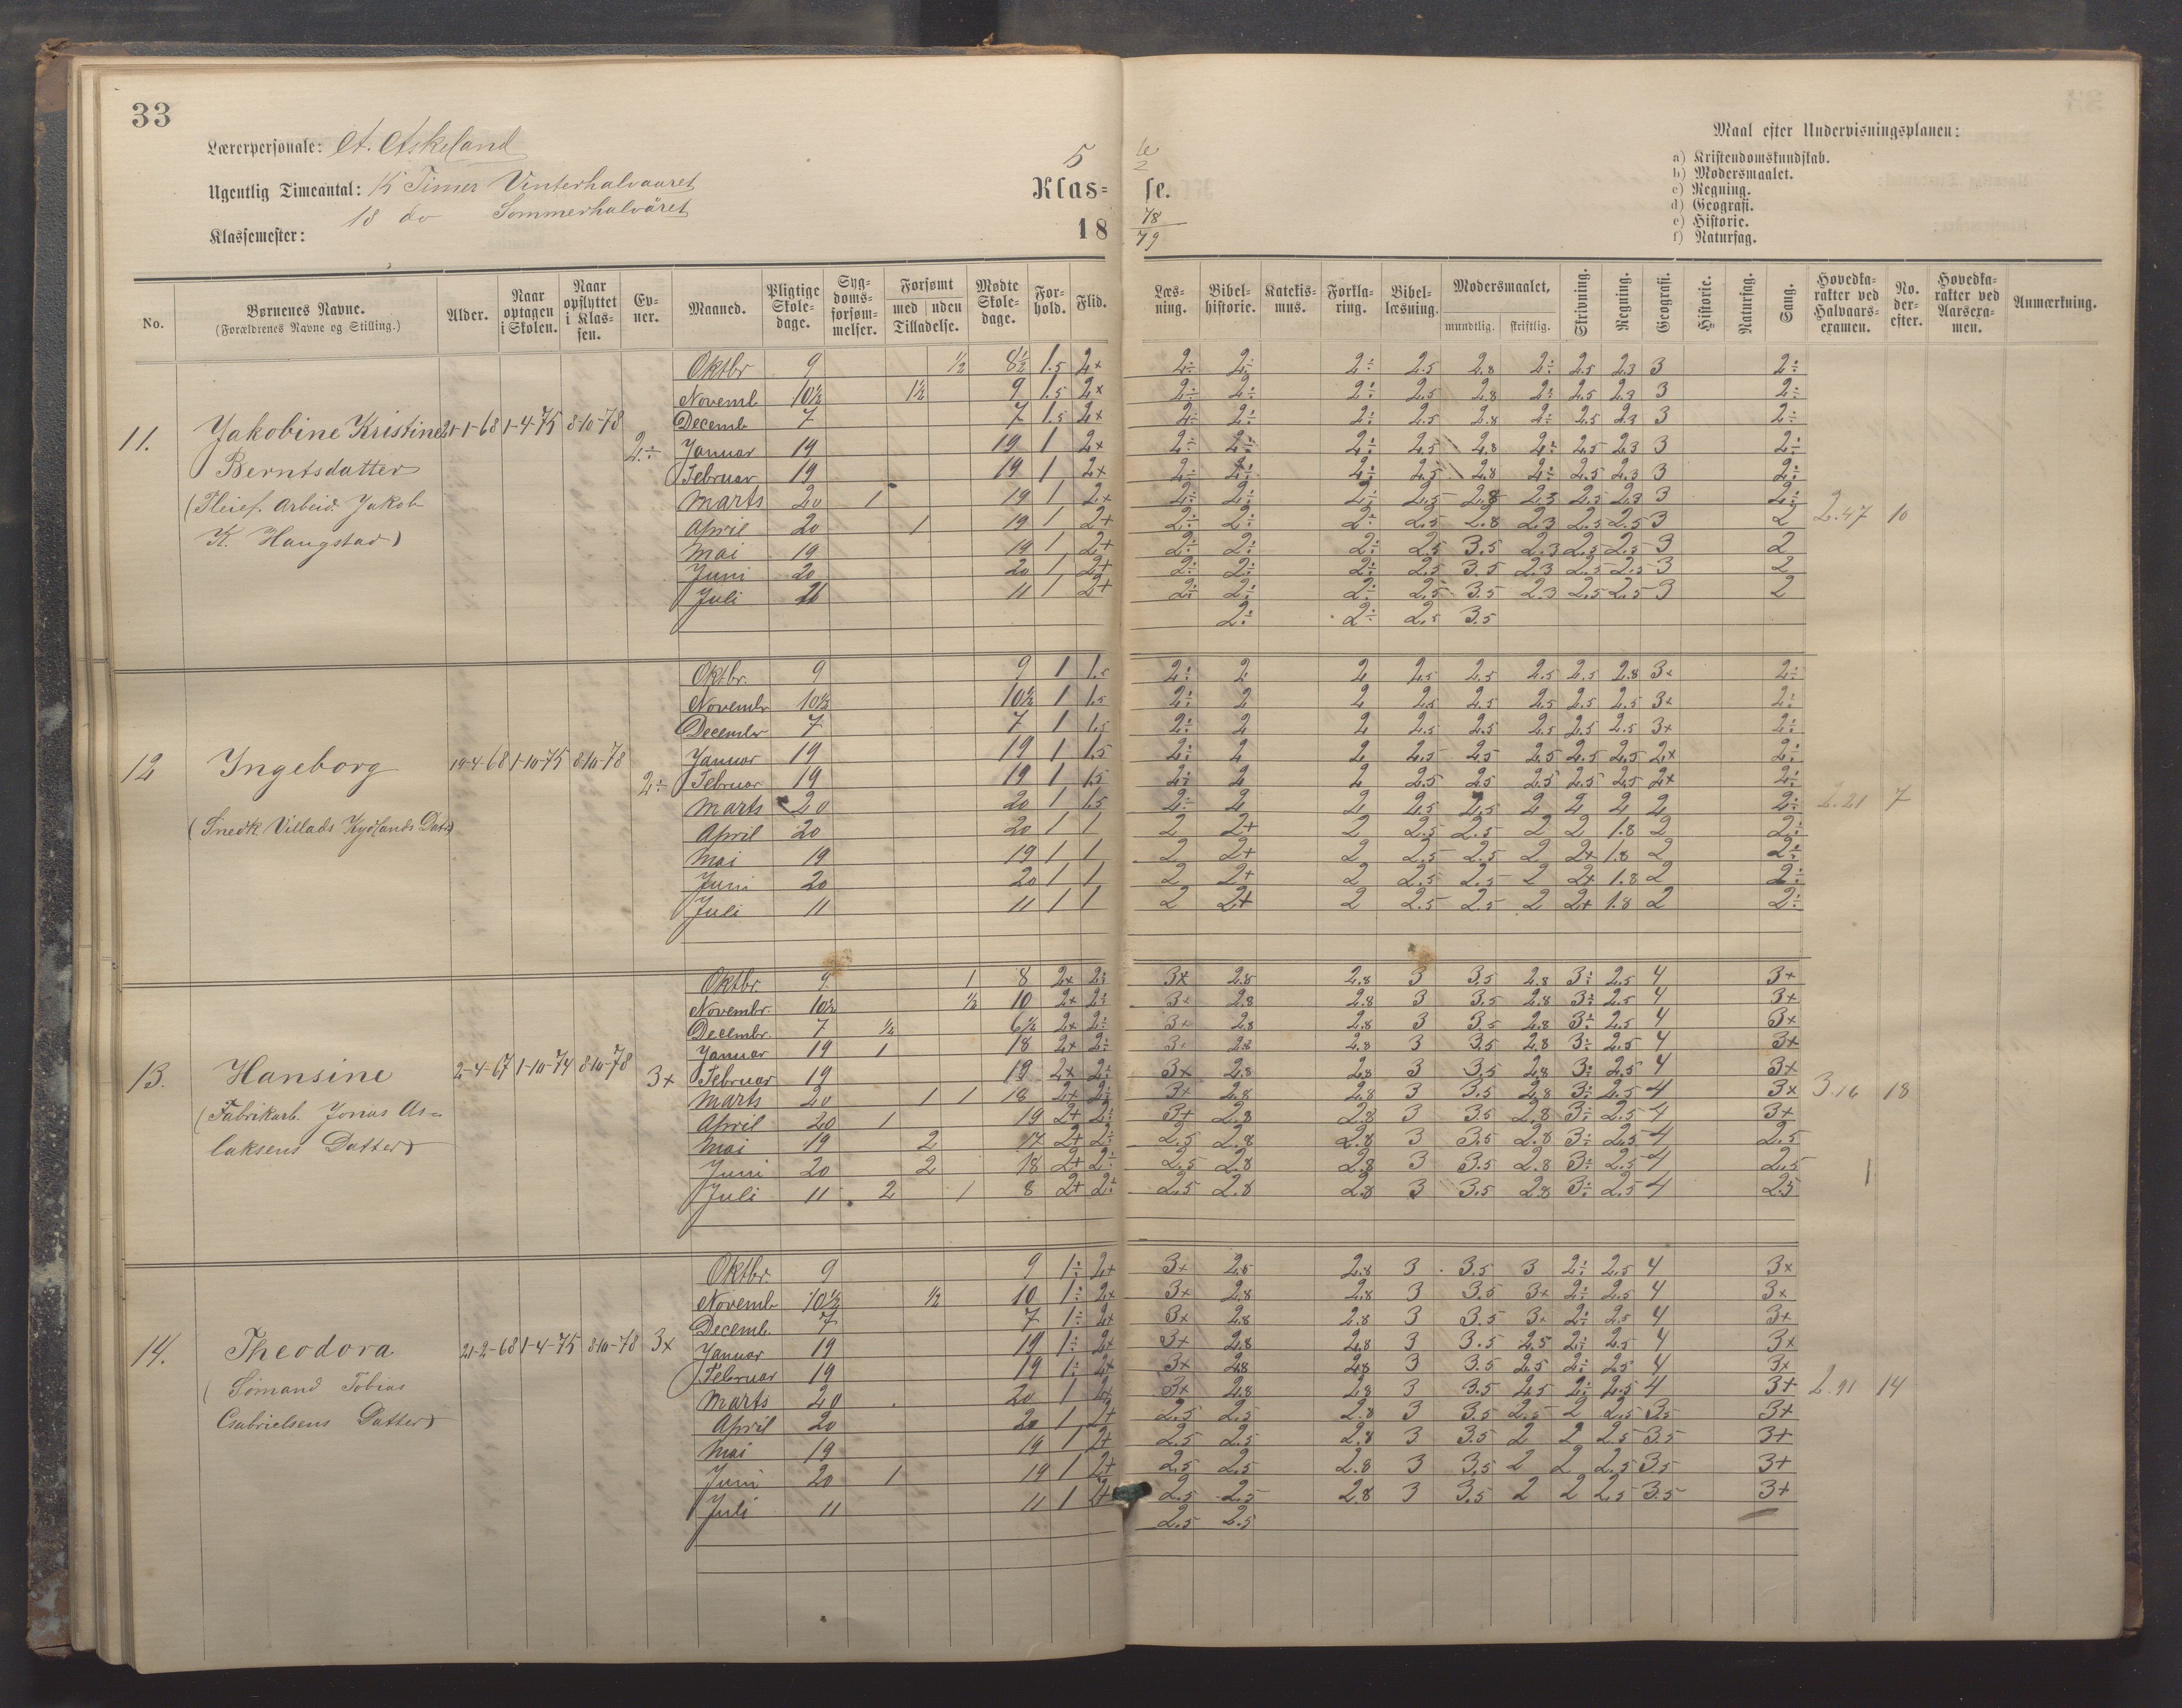 33
Lærerpersonale: A. Askeland
Ugentlig Timeantal: 15 Timer Vinterhalvaaret
18 do Sommerhalvåret
Klassemester:
5
Klas=
18
te
2
se.
78
79
Maal efter Undervisningsplanen:
a) Kristendomskundskab.
b) Modersmaalet.
c) Regning.
d) Geografi.
e) Historie.
f) Naturfag.
No. Børnenes Navne. (Forældrenes Navne og Stilling.) Alder. Naar optagen i Skolen. Naar opflyttet i Klassen. Evner. Maaned. Pligtige Skoledage. Sygdomsforsømmelser. Forsømt med uden Tilladelse. Mødte Skoledage. Forhold. Flid.
Læsning. Bibelhistorie. Katekismus. Forklaring. Bibellæsning. Modersmaalet, mundtlig. skriftlig. Skrivning. Regning. Geografi. Historie. Naturfag. Sang. Hovedkarakter ved Halvaarsexamen. No. derefter. Hovedkarakter ved Aarsexamen. Anmærkning.
11. Jakobine Kristine 21-1-68 1-4-75 8-10-78 2÷
Berntsdatter
(Pleief. Arbeid. Jakob
K. Haugstad)
Oktbr 9 ½ 8½ 1.5 2+ 2÷ 2÷ 2÷ 2.5 2.8 2÷ 2.5 2.3 3 2÷
Novemb 10½ 1½ 9 1.5 2+ 2÷ 2÷ 2÷ 2.5 2.8 2÷ 2.5 2.3 3 2÷
Decemb 7 7 1.5 2+ 2÷ 2÷ 2÷ 2.5 2.8 2÷ 2.5 2.3 3 2÷
Januar 19 19 1 2+ 2÷ 2÷ 2÷ 2.5 2.8 2÷ 2.5 2.3 3 2÷
Februar 19 19 1 2+ 2÷ 2÷ 2÷ 2.5 2.8 2÷ 2.5 2.3 3 2÷
Marts 20 1 19 1 2+ 2÷ 2÷ 2÷ 2.5 2.8 2.3 2.5 2.3 3 2÷ 2.47 10
April 20 1 19 1 2+ 2÷ 2÷ 2÷ 2.5 2.8 2.3 2.5 2.5 3 2
Mai 19 19 1 2+ 2÷ 2÷ 2÷ 2.5 3.5 2.3 2.5 2.5 3 2
Juni 20 20 1 2+ 2÷ 2÷ 2÷ 2.5 3.5 2.3 2.5 2.5 3 2
Juli 11 1 2+ 2÷ 2÷ 2÷ 2.5 3.5 2.3 2.5 2.5 3 2
2÷ 2÷ 2.5 3.5
12 Ingeborg 19-4-68 1-10-75 8-10-78 2÷
(Snedk. Villads Kydlands Datter)
Oktbr. 9 9 1 1.5 2÷ 2 2 2.5 2.5 2.5 2.5 2.8 3+ 2÷
Novembr 10½ 10½ 1 1.5 2÷ 2 2 2.5 2.5 2.5 2.5 2.5 3+ 2÷
Decembr 7 7 1 1.5 2÷ 2 2 2.5 2.5 2.5 2.5 2.5 3+ 2÷
Januar 19 19 1 1.5 2÷ 2 2 2.5 2.5 2.5 2.5 2.5 2+ 2÷
Februar 19 19 1 1.5 2÷ 2 2 2.5 2.5 2.5 2.5 2.5 2+ 2÷
Marts 20 20 1 1.5 2÷ 2 2 2.5 2.5 2 2 2 2 2÷ 2.21 7
April 20 20 1 1 2 2+ 2 2.5 2.5 2 2 1.8 2 2÷
Mai 19 19 1 1 2 2+ 2 2.5 2.5 2 2+ 1.8 2 2÷
Juni 20 20 1 1 2 2+ 2 2.5 2.5 2 2+ 1.8 2 2÷
Juli 11 11 1 1 2 2+ 2 2.5 2.5 2 2+ 1.8 2 2÷
13. Hansine 2-4-67 1-10-74 8-10-78 3+
(Fabrikarb. Jonas As=
laksens Datter)
Oktbr. 9 1 8 2+ 2÷ 3+ 2.8 2.8 3 3.5 2.8 3÷ 2.5 4 3+
Novembr. 10½ ½ 10 2+ 2÷ 3+ 2.8 2.8 3 3.5 2.8 3÷ 2.5 4 3+
Decembr. 7 2+ 2÷ 3+ 2.8 2.8 3 3.5 2.8 3÷ 2.5 4 3+
Januar 19 1 18 2+ 2÷ 3+ 2.8 2.8 3 3.5 2.8 3÷ 2.5 4 3+
Februar 19 19 2+ 2÷ 3+ 2.8 2.8 3 3.5 2.8 3÷ 2.5 4 3+
Marts 20 1 1 18 2+ 2÷ 3+ 2.8 2.8 3 3.5 2.8 3÷ 2.5 4 3+ 3.16 18
April 20 1 19 2+ 2÷ 3+ 2.8 2.8 3 3.5 2.8 3÷ 2.5 4 3+
Mai 19 2 17 2+ 2÷ 2.5 2.8 2.8 3 3.5 2.8 3÷ 2.5 4 2.5
Juni 20 2 18 2+ 2÷ 2.5 2.8 2.8 3 3.5 2.8 3÷ 2.5 4 2.5
Juli 11 2 1 8 2+ 2÷ 2.5 2.8 2.8 3 3.5 2.8 3÷ 2.5 4 2.5
14. Theodora 21-2-68 1-4-75 8-10-78 3+
(Sømand Tobias
Gabrielsens Datter)
Oktbr. 9 9 1÷ 2+ 3+ 2.8 2.8 3 3.5 3 2÷ 2.5 4 3+
Novemb 10½ ½ 10 1÷ 2+ 3+ 2.8 2.8 3 3.5 3+ 2÷ 2.5 4 3+
Decemb. 7 7 1÷ 2+ 3+ 2.8 2.8 3 3.5 3+ 2÷ 2.5 4 3+
Januar 19 19 1÷ 2+ 3+ 2.8 2.8 3 3.5 2.5 2÷ 2.5 4 3+
Februar 19 19 1÷ 2+ 3+ 2.8 2.8 3 3.5 2.5 2÷ 2.5 4 3+
Marts 20 20 1 2+ 3+ 2.8 2.8 3 3.5 2.5 2÷ 2.5 4 3+ 2.91 14
April 20 20 1 2+ 2.5 2.5 2.8 3 3.5 2.5 2 2.5 3.5 3+
Mai 19 19 1 2+ 2.5 2.5 2.8 3 3.5 2 2 2.5 3.5 3+
Juni 20 1 19 1 2+ 2.5 2.5 2.8 3 3.5 2 2 2.5 3.5 3+
Juli 11 11 1 2+ 2.5 2.5 2.8 3 3.5 2 2 2.5 3.5 3+
2.5 2.5